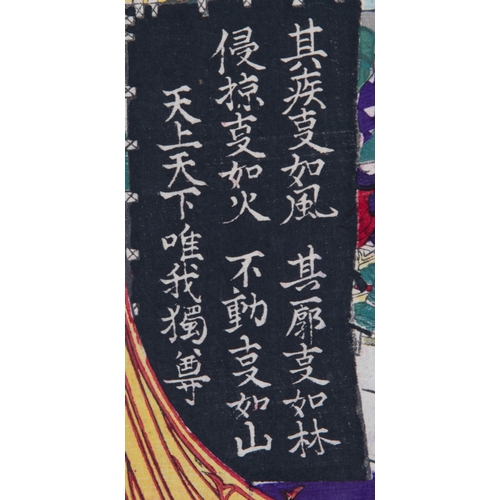 其疾叓如風　其廓叓如林
侵掠叓如火　不動叓如山
天上天下唯我獨尊